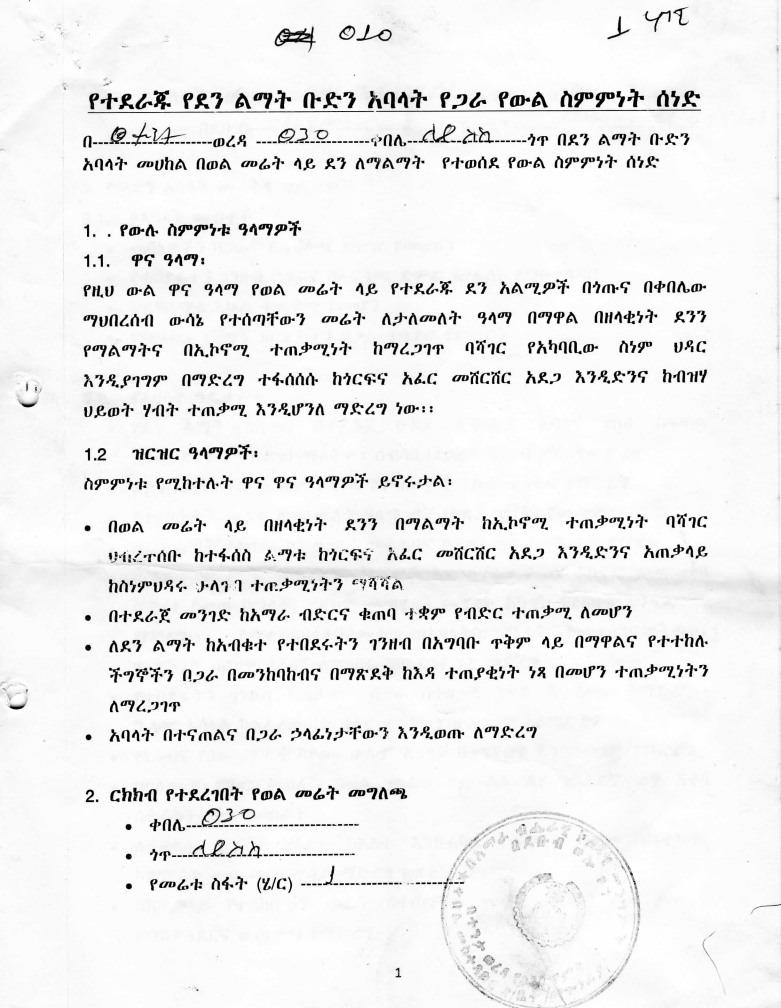 010
1 ሃገ
የተደራጁ የደን ልማት ቡድን አባላት የጋራ የውል ስምምነት ሰነድ
በ-----------------------ወረዳ ----030------------ቀበሌ-----------------------ጎጥ በደን ልማት ቡድን
አባላት መሀከል በወል መሬት ላይ ደን ለማልማት የተወሰደ የውል ስምምነት ሰነድ
1. . የውሉ ስምምነቱ ዓላማዎች
1.1. ዋና ዓላማ፡
የዚህ ውል ዋና ዓላማ የወል መሬት ላይ የተደራጁ ደን አልሚዎች በጎጡና በቀበሌው
ማህበረሰብ ውሳኔ የተሰጣቸውን መሬት ለታለመለት ዓላማ በማዋል በዘላቂነት ደንን
የማልማትና በኢኮኖሚ ተጠቃሚነት ከማረጋገጥ ባሻገር የአካባቢው ስነም ህዳር
እንዲያገግም በማድረግ ተፋሰሰሱ ከጎርፍና አፈር መሸርሸር አደጋ እንዲድንና ከብዝሃ
ህይወት ሃብት ተጠቃሚ እንዲሆንለ ማድረግ ነው፡፡
1.2 ዝርዝር ዓላማዎች፡
ስምምነቱ የሚከተሉት ዋና ዋና ዓላማዎች ይኖሩታል፡
• በወል መሬት ላይ በዘላቂነት ደንን በማልማት ከኢኮኖሚ ተጠቃሚነት ባሻገር
ህብረተሰቡ ከተፋሰስ ልማቱ ከጎርፍና አፈር መሸርሸር አደጋ እንዲድንና አጠቃላይ
ከስነምህዳሩ ተጠቃሚነትን ማሻሻል
• በተደራጀ መንገድ ከአማራ ብድርና ቁጠባ ተቋም የብድር ተጠቃሚ ለመሆን
• ለደን ልማት ከአብቁተ የተበደሩትን ገንዘብ በአግባቡ ጥቅም ላይ በማዋልና የተተከሉ
ችግኞችን በጋራ በመንከባከብና በማጽደቅ ከእዳ ተጠያቂነት ነጻ በመሆን ተጠቃሚነትን
ለማረጋገጥ
• አባላት በተናጠልና በጋራ ኃላፊነታቸውን እንዲወጡ ለማድረግ
2. ርክክብ የተደረገበት የወል መሬት መግለጫ
• ቀበሌ---030----------------------
• ጎጥ-----------------------------------
• የመሬቱ ስፋት (ሄ/ር) -----1-----------------------
1